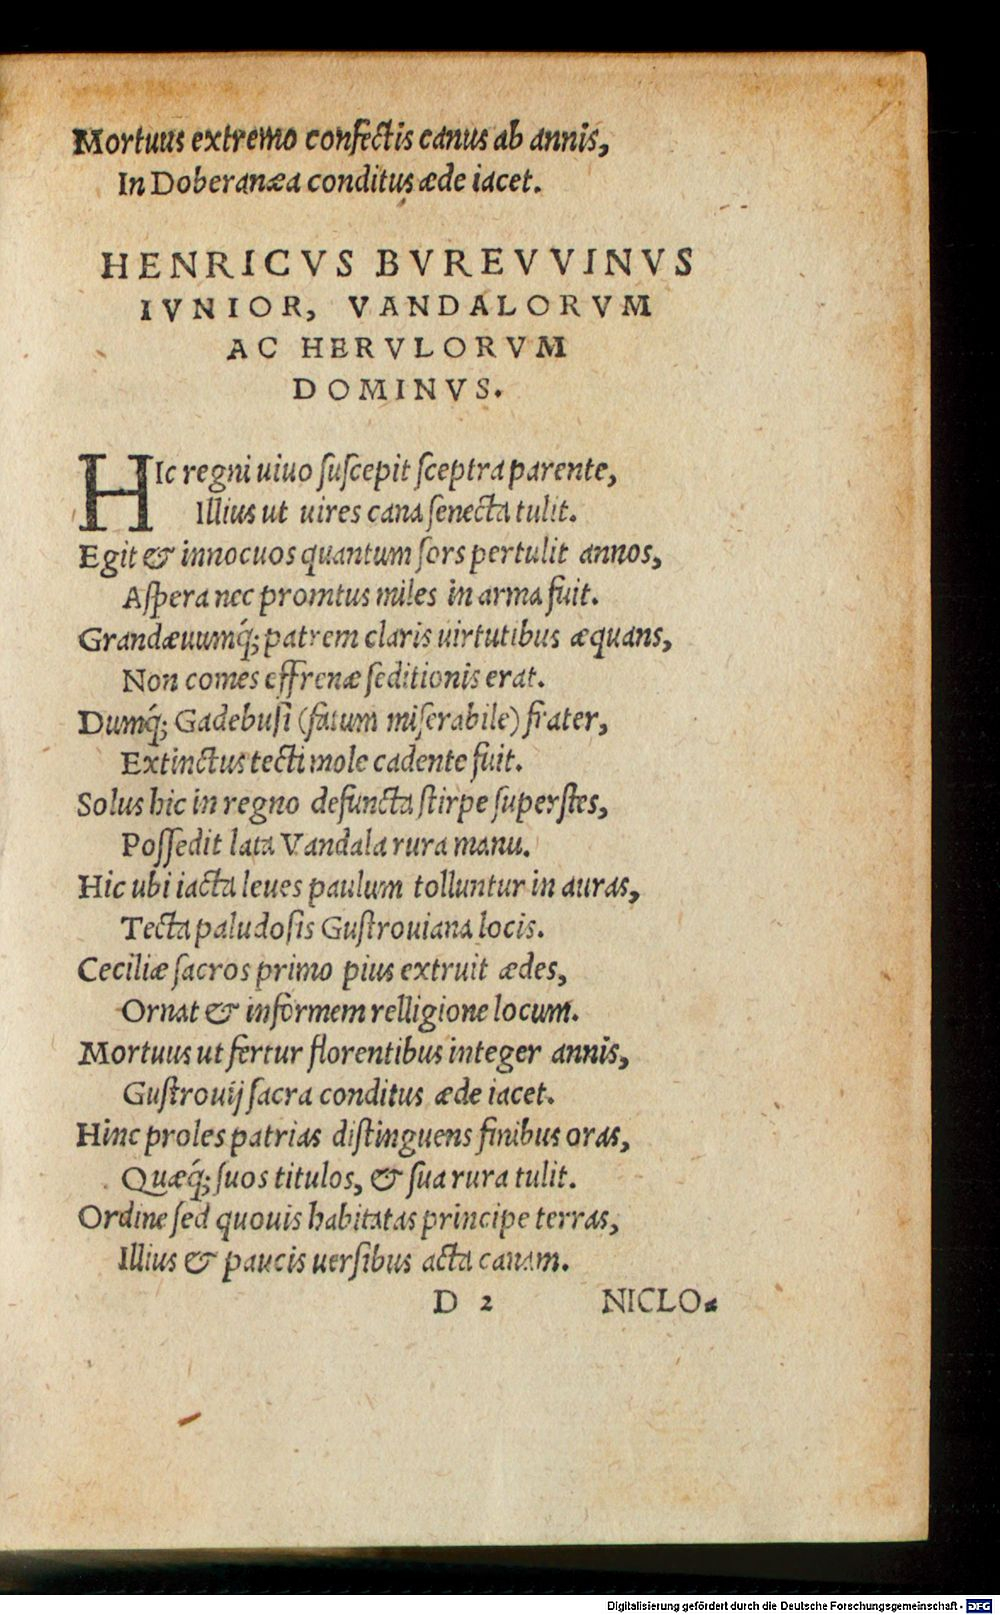 Mortuus extremo confectis canus ab annis,
In Doberanæa conditus æde iacet.
HENRICVS BVREVVINVS
IVNIOR, VANDALORVM
AC HERVLORVM
DOMINVS.
HIc regni uiuo ſuſcepit ſceptra parente,
Illius ut uires cana ſenecta tulit.
Egit & innocuos quantum ſors pertulit annos,
Aſpera nec promtus miles in arma fuit.
Grandæuumq́; patrem claris uirtutibus æquans,
Non comes effrenæ ſeditionis erat.
Dumq́; Gadebuſi (fatum miſerabile) frater,
Extinctus tecti mole cadente fuit.
Solus hic in regno defuncta ſtirpe ſuperſtes,
Poſſedit lata Vandala rura manu.
Hic ubi iacta leues paulum tolluntur in auras,
Tecta paludoſis Guſtrouiana locis.
Ceciliæ ſacros primo pius extruit ædes,
Ornat & informem relligione locum.
Mortuus ut fertur florentibus integer annis,
Guſtrouij ſacra conditus æde iacet.
Hinc proles patrias diſtinguens finibus oras,
Quæq́; ſuos titulos, & ſua rura tulit.
Ordine ſed quouis habitatas principe terras,
Illius & paucis uerſibus acta canam.
D 2 NICLO-
Digitalisierung gefördert durch die Deutsche Forschungsgemeinschaft - DFG